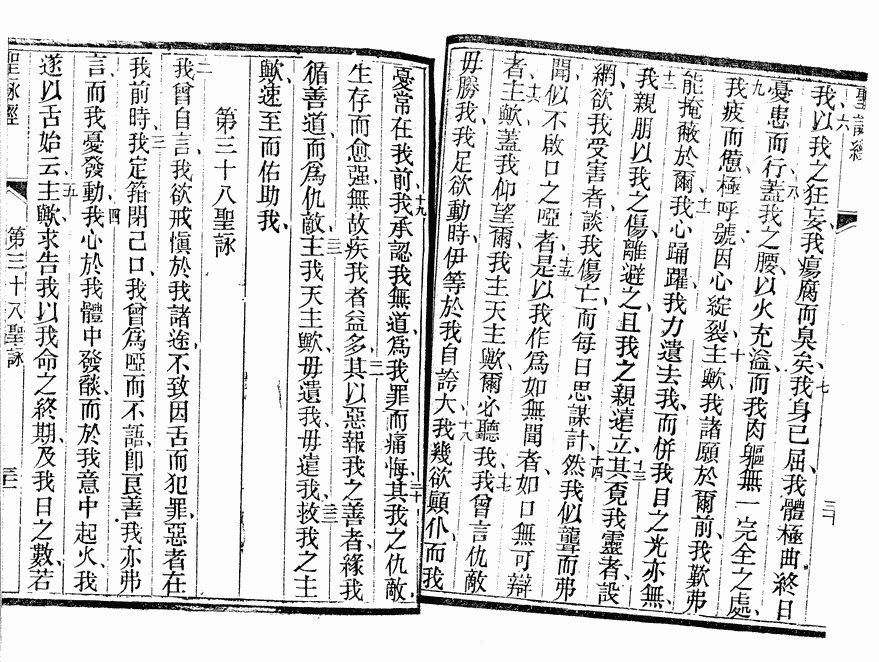 聖詠經
三十
六我以我之狂妄、我瘍腐而臭矣、七我身已屈、我體極曲、終日
憂患而行、八蓋我之腰、以火充溢、而我肉軀無一完全之處、
九我疲而憊極、呼號因心綻裂、十主歟、我諸願於爾前、我歎弗
能掩蔽於爾、十一我心踊躍、我力遺去我、而併我目之光亦無、
十二我親朋以我之傷離避之、且我之親遠立、十三其覓我靈者設
網、欲我受害者談我傷亡、而每日思謀計、十四然我似聾而弗
聞、似不啟口之啞者、十五是以我作為如無聞者、如口無可辯
者、十六主歟、蓋我仰望爾、我主天主歟、爾必聽我、十七我曾言仇敵
毋勝我、我足欲動時、伊等於我自誇大、十八我幾欲顛仆、而我
憂常在我前、十九我承認我無道、為我罪而痛悔、二十其我之仇敵
生存而愈强、無故疾我者益多、二一其以惡報我之善者、緣我
循善道而為仇敵、二二主我天主歟、毋遺我、毋遠我、二三救我之主
歟、速至而佑助我、
第三十八聖詠
二我曾自言、我欲戒愼於我諸途、不致因舌而犯罪、惡者在
我前時、我定箝閉己口、三我曾為啞而不語、卽良善我亦弗
言、而我憂發動、四我心於我體中發燄、而於我意中起火、我
遂以舌始云、五主歟、求告我以我命之終期、及我日之數若
聖詠經
第三十八聖詠
三一